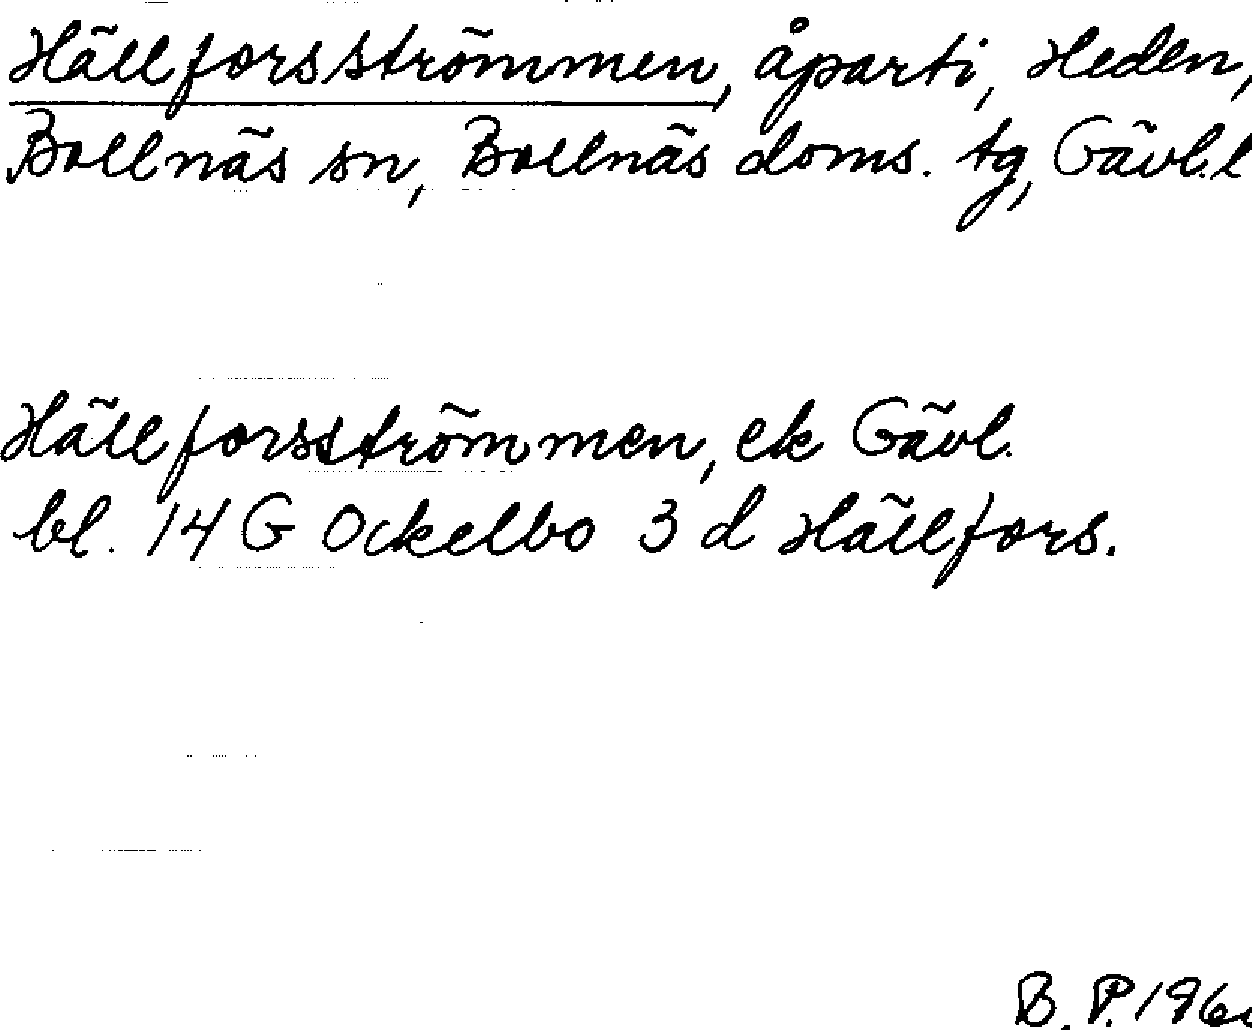 Hällforsströmmen, åparti, Heden,
Bollnäs sn, Bollnäs doms. tg, Gävl.l
Hällforsströmmen, ek Gävl.
bl. 14 G Ockelbo 3 d Hällfors.
B. P.